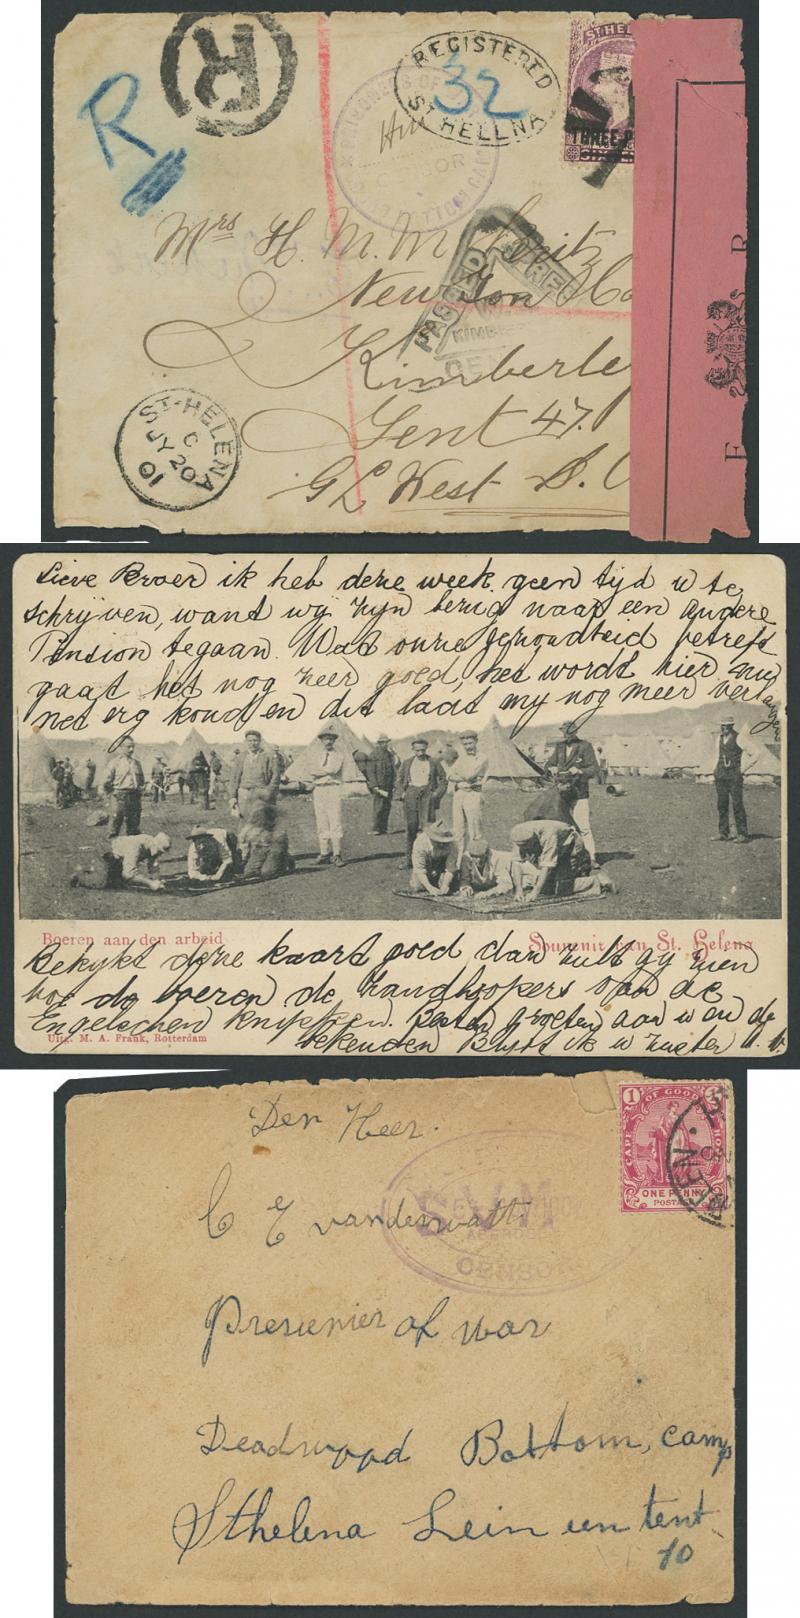 R
R
REGISTERED
32
ST HELENA
ST HEL
THREE P
PRISONERS OF
CENSOR
BOTTOM CAMP
Mrs H. M. M.
New Ton
Kimberle
Tent 47.
G L West S.
PASSED
KIMB
ST. HELENA
C
JY 20
01
E R
Lieve Broer ik heb deze week geen tijd u te
schrijven, want wy zyn bezig naar een andere
Pension tegaan. Wat onze gezondheid betreft
gaat het nog zeer goed, het wordt hier nu
net erg koud en dit laat my nog meer verlangen
Boeren aan den arbeid
Souvenir van St. Helena
Bekykt deze kaart goed dan zult gy zien
hoe de boeren de
van de
Engelschen knippen. Beste groeten aan u en de
Uitg. M. A. Frank, Rotterdam
bekenden
ik u zuster
Den Heer.
C E vanderwatt
Presenier of war
Deadwood Bottom, camp
Sthelena Lein een tent
10
CENSOR
CAPE OF GOOD HOPE
1
ONE PENNY
POSTAGE